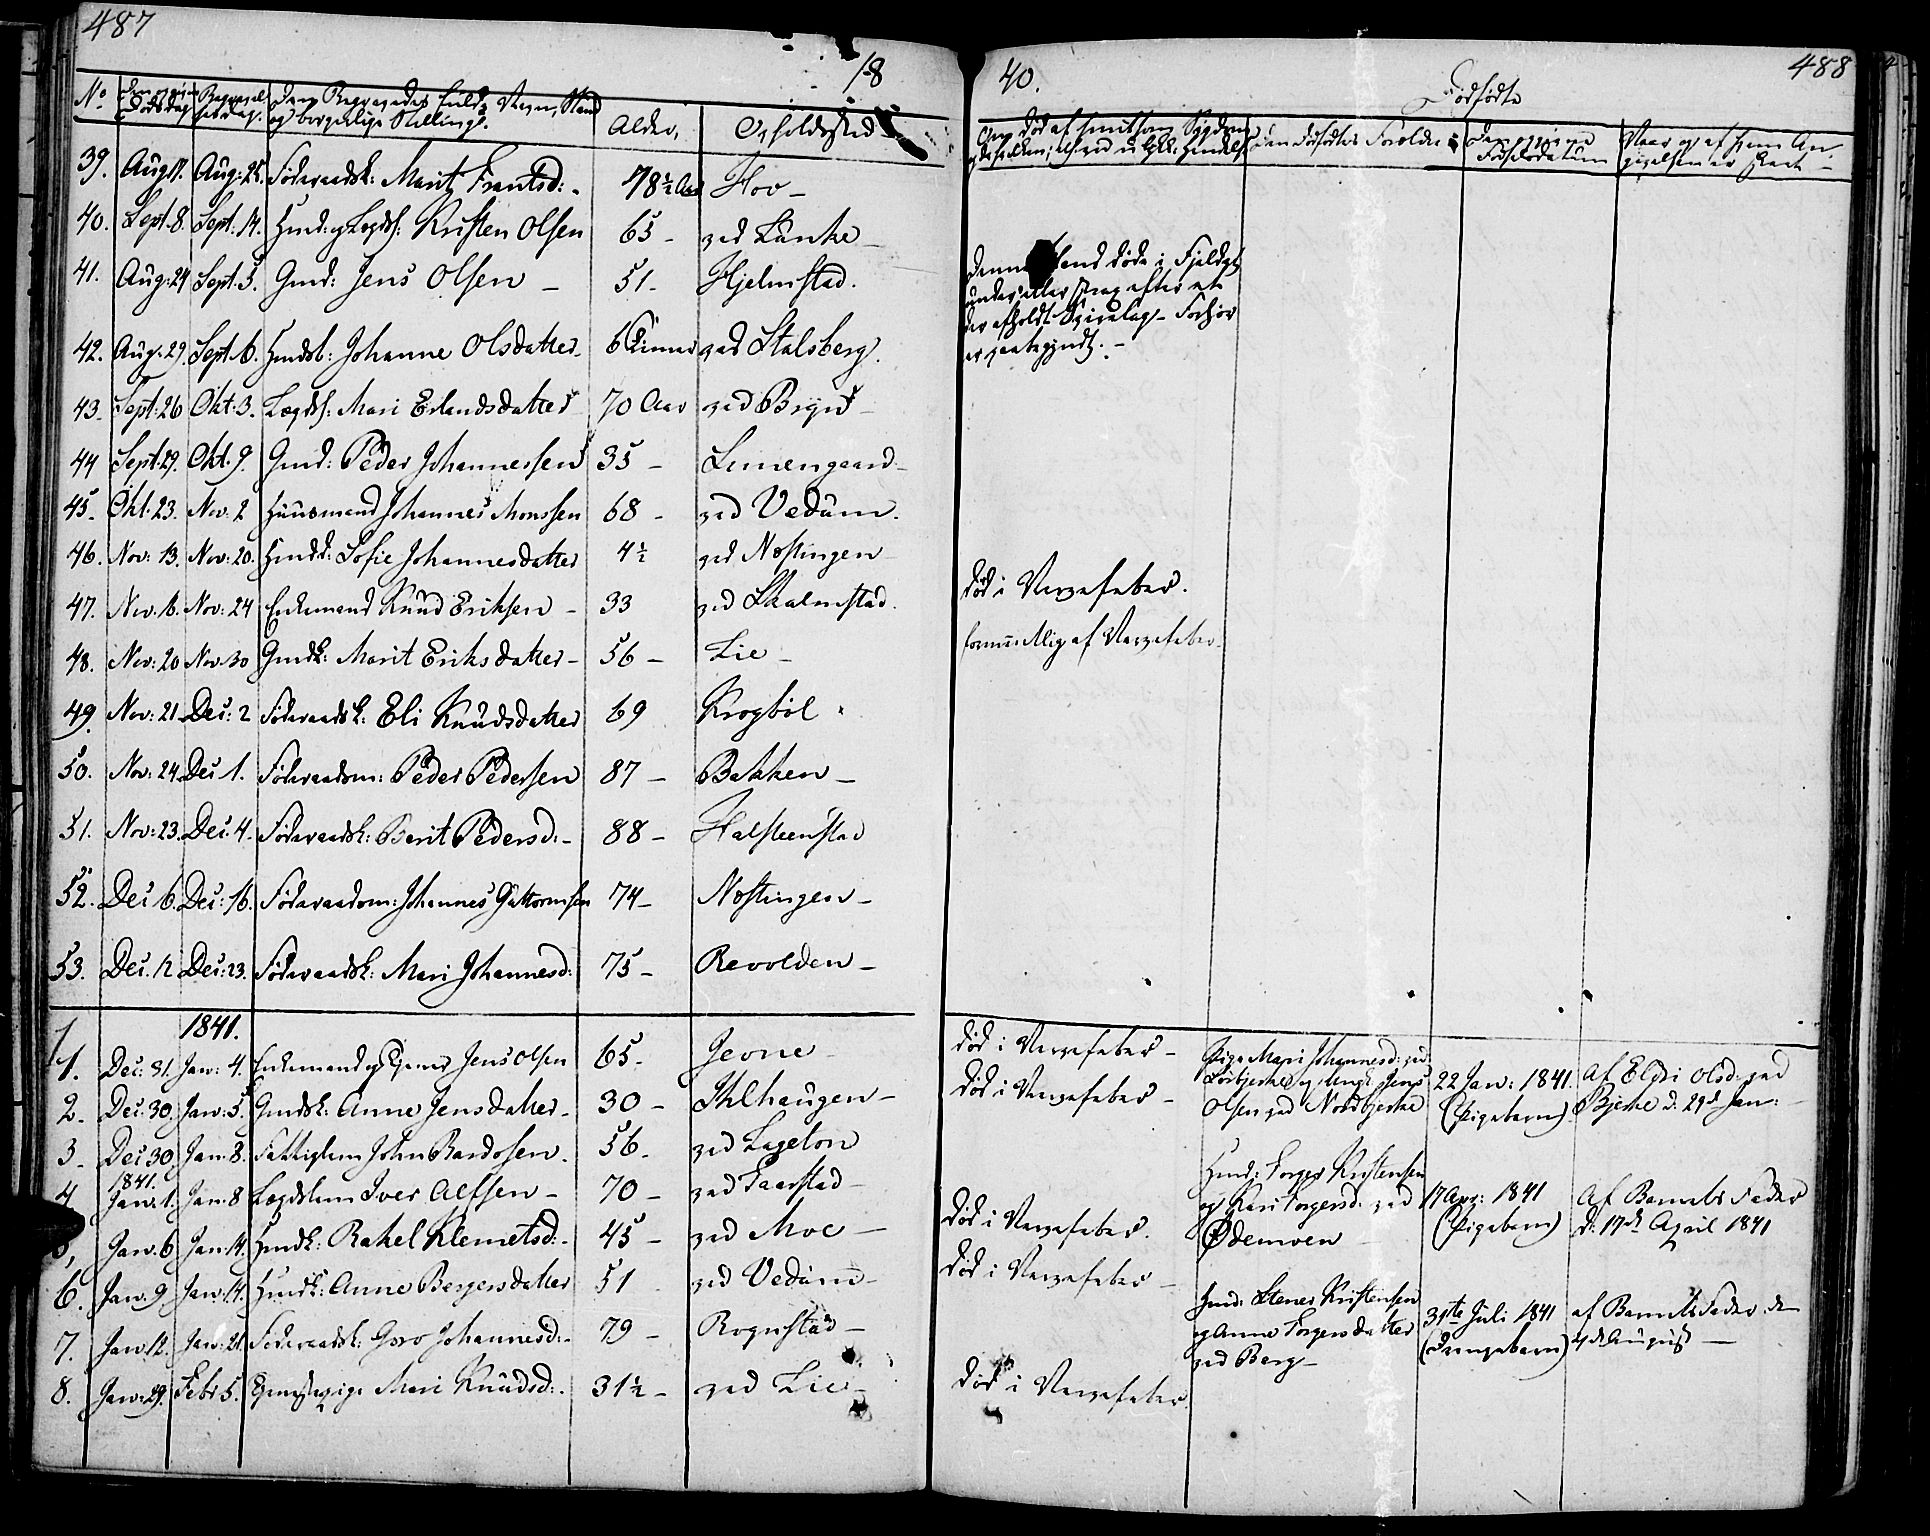 487
18
40.
488
Dødfødte
No Dødsdag Begravelsesdag. Den Begravedes fulde Navn, Stand og borgerlige Stilling. Alder. Opholdssted
den dødfødtes Forældre
39. Aug: 17. Aug: 25. Føderaadsk: Marit Frantsd: - 78½ Aar Hov -
40. Sept. 8. Sept: 14. Hmd: og Lægds: Kristen Olsen 65 - ved Lunke -
41. Aug: 24 Sept. 5. Gmd: Jens Olsen - 51 - Hjelmstad.
Denne Mand døde i Fjeldet
under eller strax efter at
der afholdt Forhør
er paabegyndt. -
42. Aug. 29. Sept. 6. Hmdsb: Johanne Olsdatter - 6 ved Stalsberg.
43. Sept: 26 Okt: 3. Lægds: Mari Erlandsdatter 70 Aar ved Bryn -
44 Sept. 29. Okt. 9. Gmd: Peder Johannessen 35 - Linnengaard -
45. Okt. 23. Nov. 2 Huusmand Johannes Monssen 68 - ved Vedum.
46. Nov: 13. Nov: 20. Hmdd: Sofie Johannesdatter 4½ ved Nøstingen
Død i Nervefeber.
47. Nov. 16. Nov: 24 Enkemand Knud Eriksen - 33 ved Skalmstad.
formentlig af Nervefeber.
48. Nov: 20 Nov. 30 Gmdk: Marit Eriksdatter - 56 - Lie -
49. Nov: 21. Dec: 2 Føderaadsk: Eli Knudsdatter 69 Krogböl
50. Nov: 24. Dec 1. Føderaadsm: Peder Pedersen 87 - Bakken -
51. Nov: 23. Dec. 4. Føderaadsk: Berit Pedersd: - 88 - Halsteenstad
52. Dec 6. Dec: 16. Føderaadsm: Johannes Guttormsen 74 - Nøstingen -
53. Dec. 12 Dec: 23. Føderaadsk: Mari Johannesd: 75 - Revolden -
1841.
1. Dec: 31. Jan: 4. Enkemand og Jens Olsen 65 - Jevne -
Død i Nervefeber -
Pige Mari Johannesd: ved
og Ungk: Jens
Olsen ved Nordbjerke
22 Jan: 1841.
(Pigebarn)
Af Eldri Olsd. ved
Bjerke d. 29d Jan: -
2. Dec. 30. Jan: 5. Gmdsk: Anne Jensdatter - 30 - Ihlhaugen -
Død i Nervefeber -
3. Dec 30 Jan: 8. Fattiglem John Bardosen. 56 - ved Lageton
4. 1841. Jan: 1. Jan: 8 Lægdslem Iver Alfsen - 70 - ved Saarstad -
Hmd: Torger Kristensen
og Kari Torgersd. ved
Ødemoen -
17 Apr: 1841
(Pigebarn)
Af Barnets Fader
d: 17d April 1841
5, Jan: 6 Jan: 14. Hmdk: Rakel Klemetsd: - 45 - ved Moe -
Død i Nervefeber.
6. Jan. 9 Jan: 14. Hmdk: Anne Bergersdatter 51 ved Vedum -
Død i Nervefeber -
7. Jan: 12. Jan: 21. Føderaadsk: Goro Johannesd: - 79 - Rognstad -
Hmd: Stener Kristensen
og Anne Torgersdatter
ved Berg -
31te Juli 1841
(Drengebarn)
af Barnets Fader den
4d August -
8. Jan: 29. Febr 5. Mari Knudsd: - 31½ - ved Lie -
Død i Nervefeber.